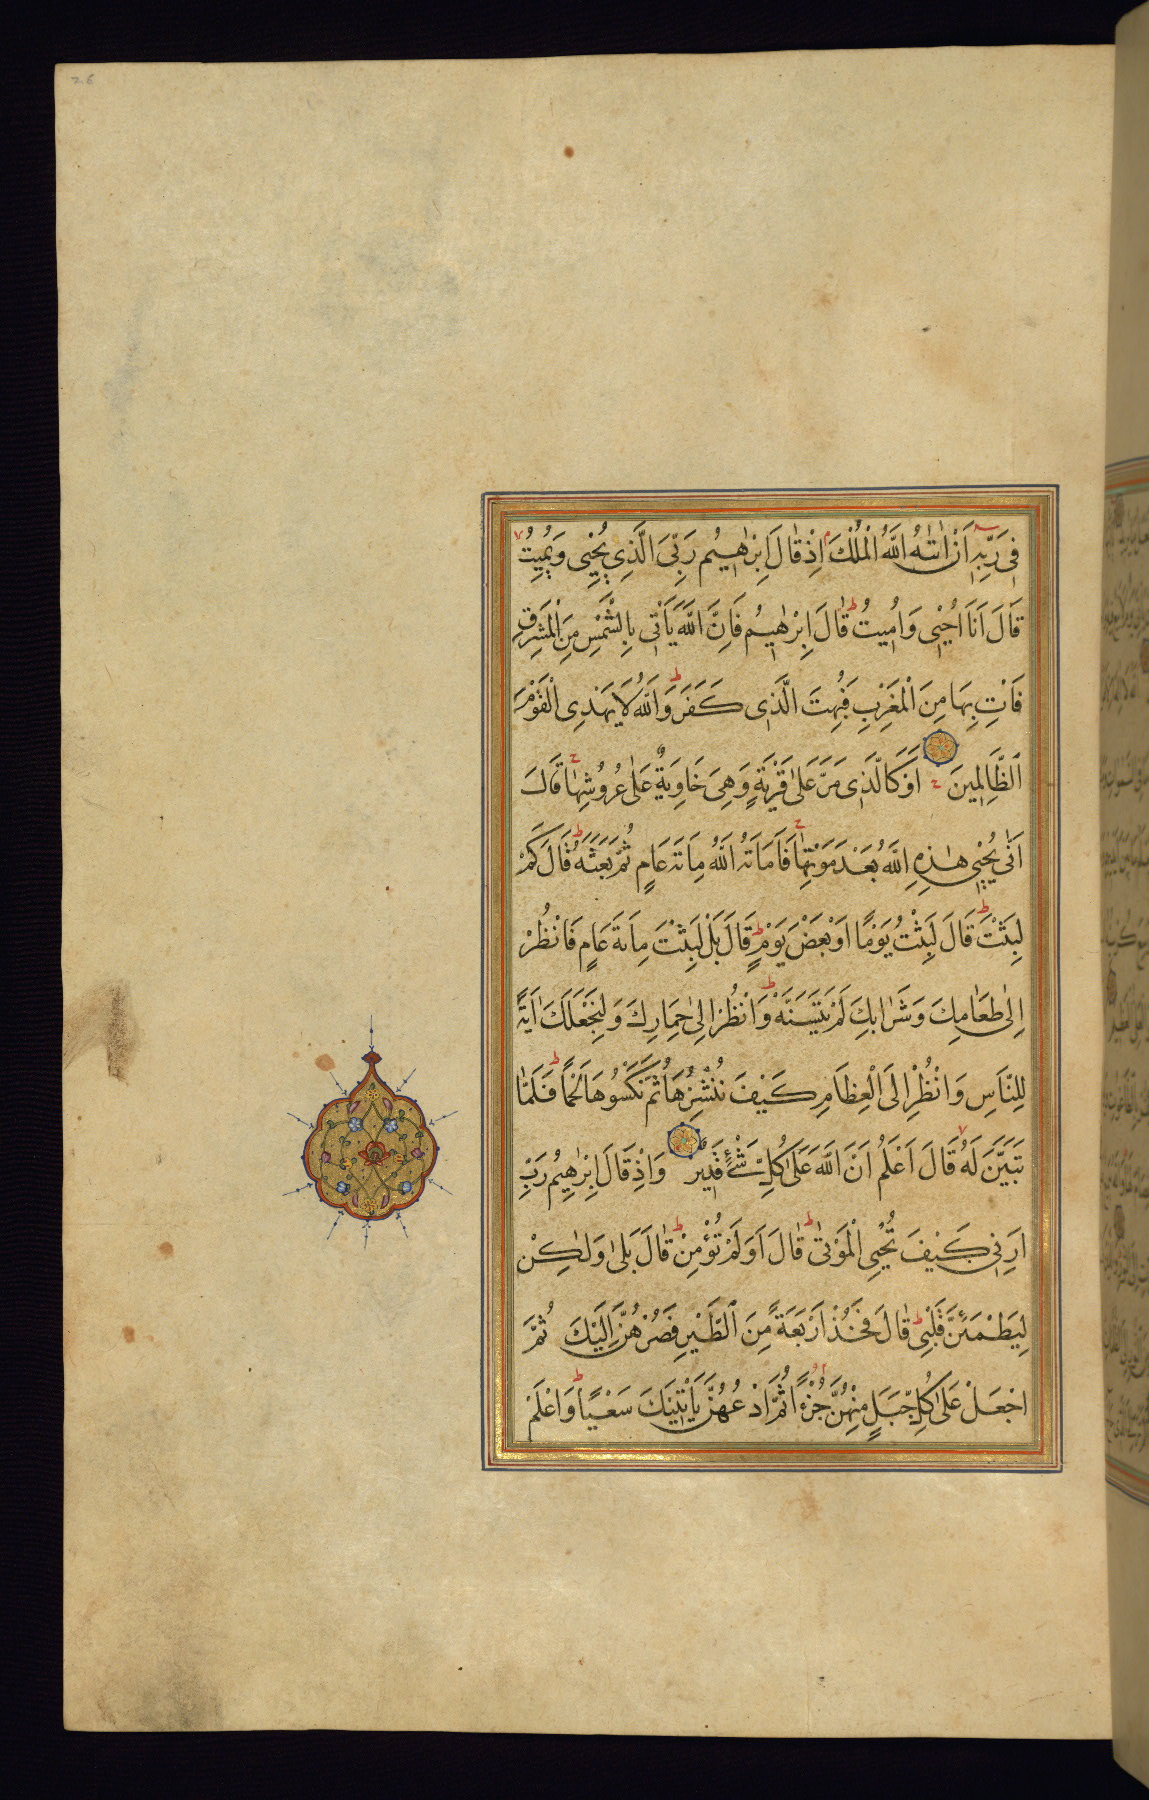 26
فِى رَبِّهِ اَنْ اٰتٰىهُ اللّٰهُ الْمُلْكَ اِذْ قَالَ اِبْرٰاهٖيمُ رَبِّىَ الَّذٖى يُحْيٖى وَيُمٖيتُ
قَالَ اَنَا اُحْيٖى وَاُمٖيتُ قَالَ اِبْرٰهٖيمُ فَاِنَّ اللّٰهَ يَأْتٖى بِالشَّمْسِ مِنَ الْمَشْرِقِ
فَاْتِ بِهَا مِنَ الْمَغْرِبِ فَبُهِتَ الَّذٖى كَفَرَ وَاللّٰهُ لَا يَهْدِى الْقَوْمَ
الظَّالِمٖينَ اَوْ كَالَّذٖى مَرَّ عَلٰى قَرْيَةٍ وَهِىَ خَاوِيَةٌ عَلٰى عُرُوشِهَا قَالَ
اَنّٰى يُحْيٖى هٰذِهِ اللّٰهُ بَعْدَ مَوْتِهَا فَاَمَاتَهُ اللّٰهُ مِائَةَ عَامٍ ثُمَّ بَعَثَهُ قَالَ كَمْ
لَبِثْتَ قَالَ لَبِثْتُ يَوْمًا اَوْ بَعْضَ يَوْمٍ قَالَ بَلْ لَبِثْتَ مِائَةَ عَامٍ فَانْظُرْ
اِلٰى طَعَامِكَ وَشَرَابِكَ لَمْ يَتَسَنَّهْ وَانْظُرْ اِلٰى حِمَارِكَ وَلِنَجْعَلَكَ اٰيَةً
لِلنَّاسِ وَانْظُرْ اِلَى الْعِظَامِ كَيْفَ نُنْشِزُهَا ثُمَّ نَكْسُوهَا لَحْمًا فَلَمَّا
تَبَيَّنَ لَهُ قَالَ اَعْلَمُ اَنَّ اللّٰهَ عَلٰى كُلِّ شَىْءٍ قَدٖيرٌ وَاِذْ قَالَ اِبْرٰهٖيمُ رَبِّ
اَرِنٖى كَيْفَ تُحْيِى الْمَوْتٰى قَالَ اَوَلَمْ تُؤْمِنْ قَالَ بَلٰى وَلٰكِنْ
لِيَطْمَئِنَّ قَلْبٖى قَالَ فَخُذْ اَرْبَعَةً مِنَ الطَّيْرِ فَصُرْهُنَّ اِلَيْكَ ثُمَّ
اجْعَلْ عَلٰى كُلِّ جَبَلٍ مِنْهُنَّ جُزْءًا ثُمَّ ادْعُهُنَّ يَأْتٖينَكَ سَعْيًا وَاعْلَمْ